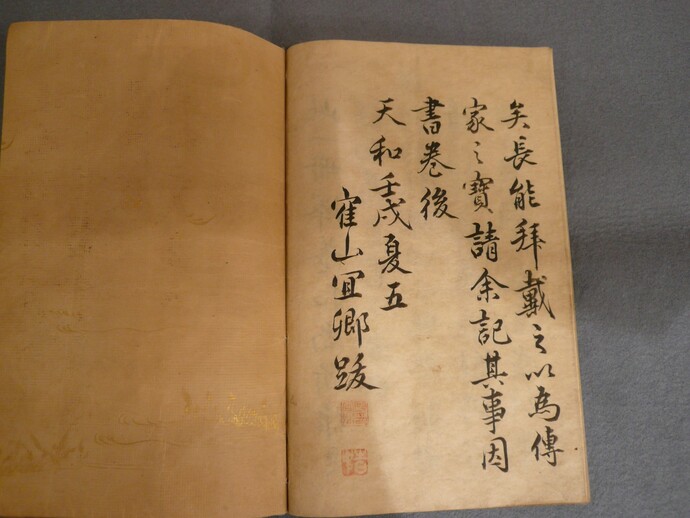 矣長能拜戴之以為傳
家之寶請余記其事因
書卷後
天和壬戌夏五
隺山宜卿跋